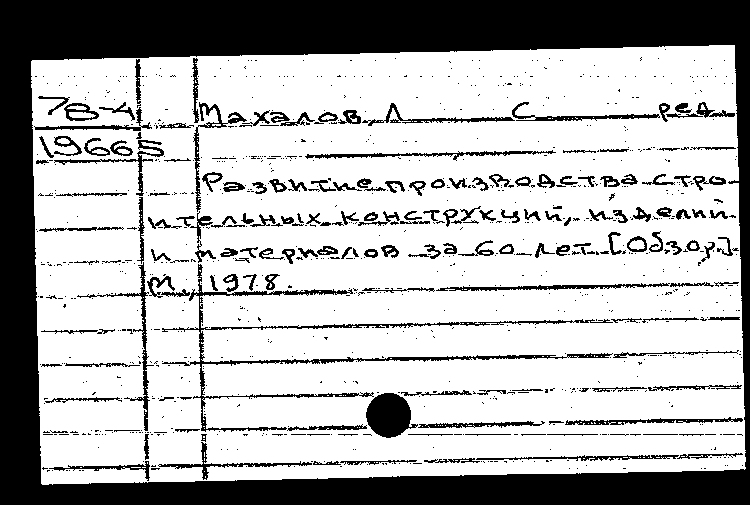 78-4 Махалов, Л С ред.
19665
Развитие производства стро
ительных конструкций, изделий
и материалов за 60 лет [Обзор.]
М., 1978.